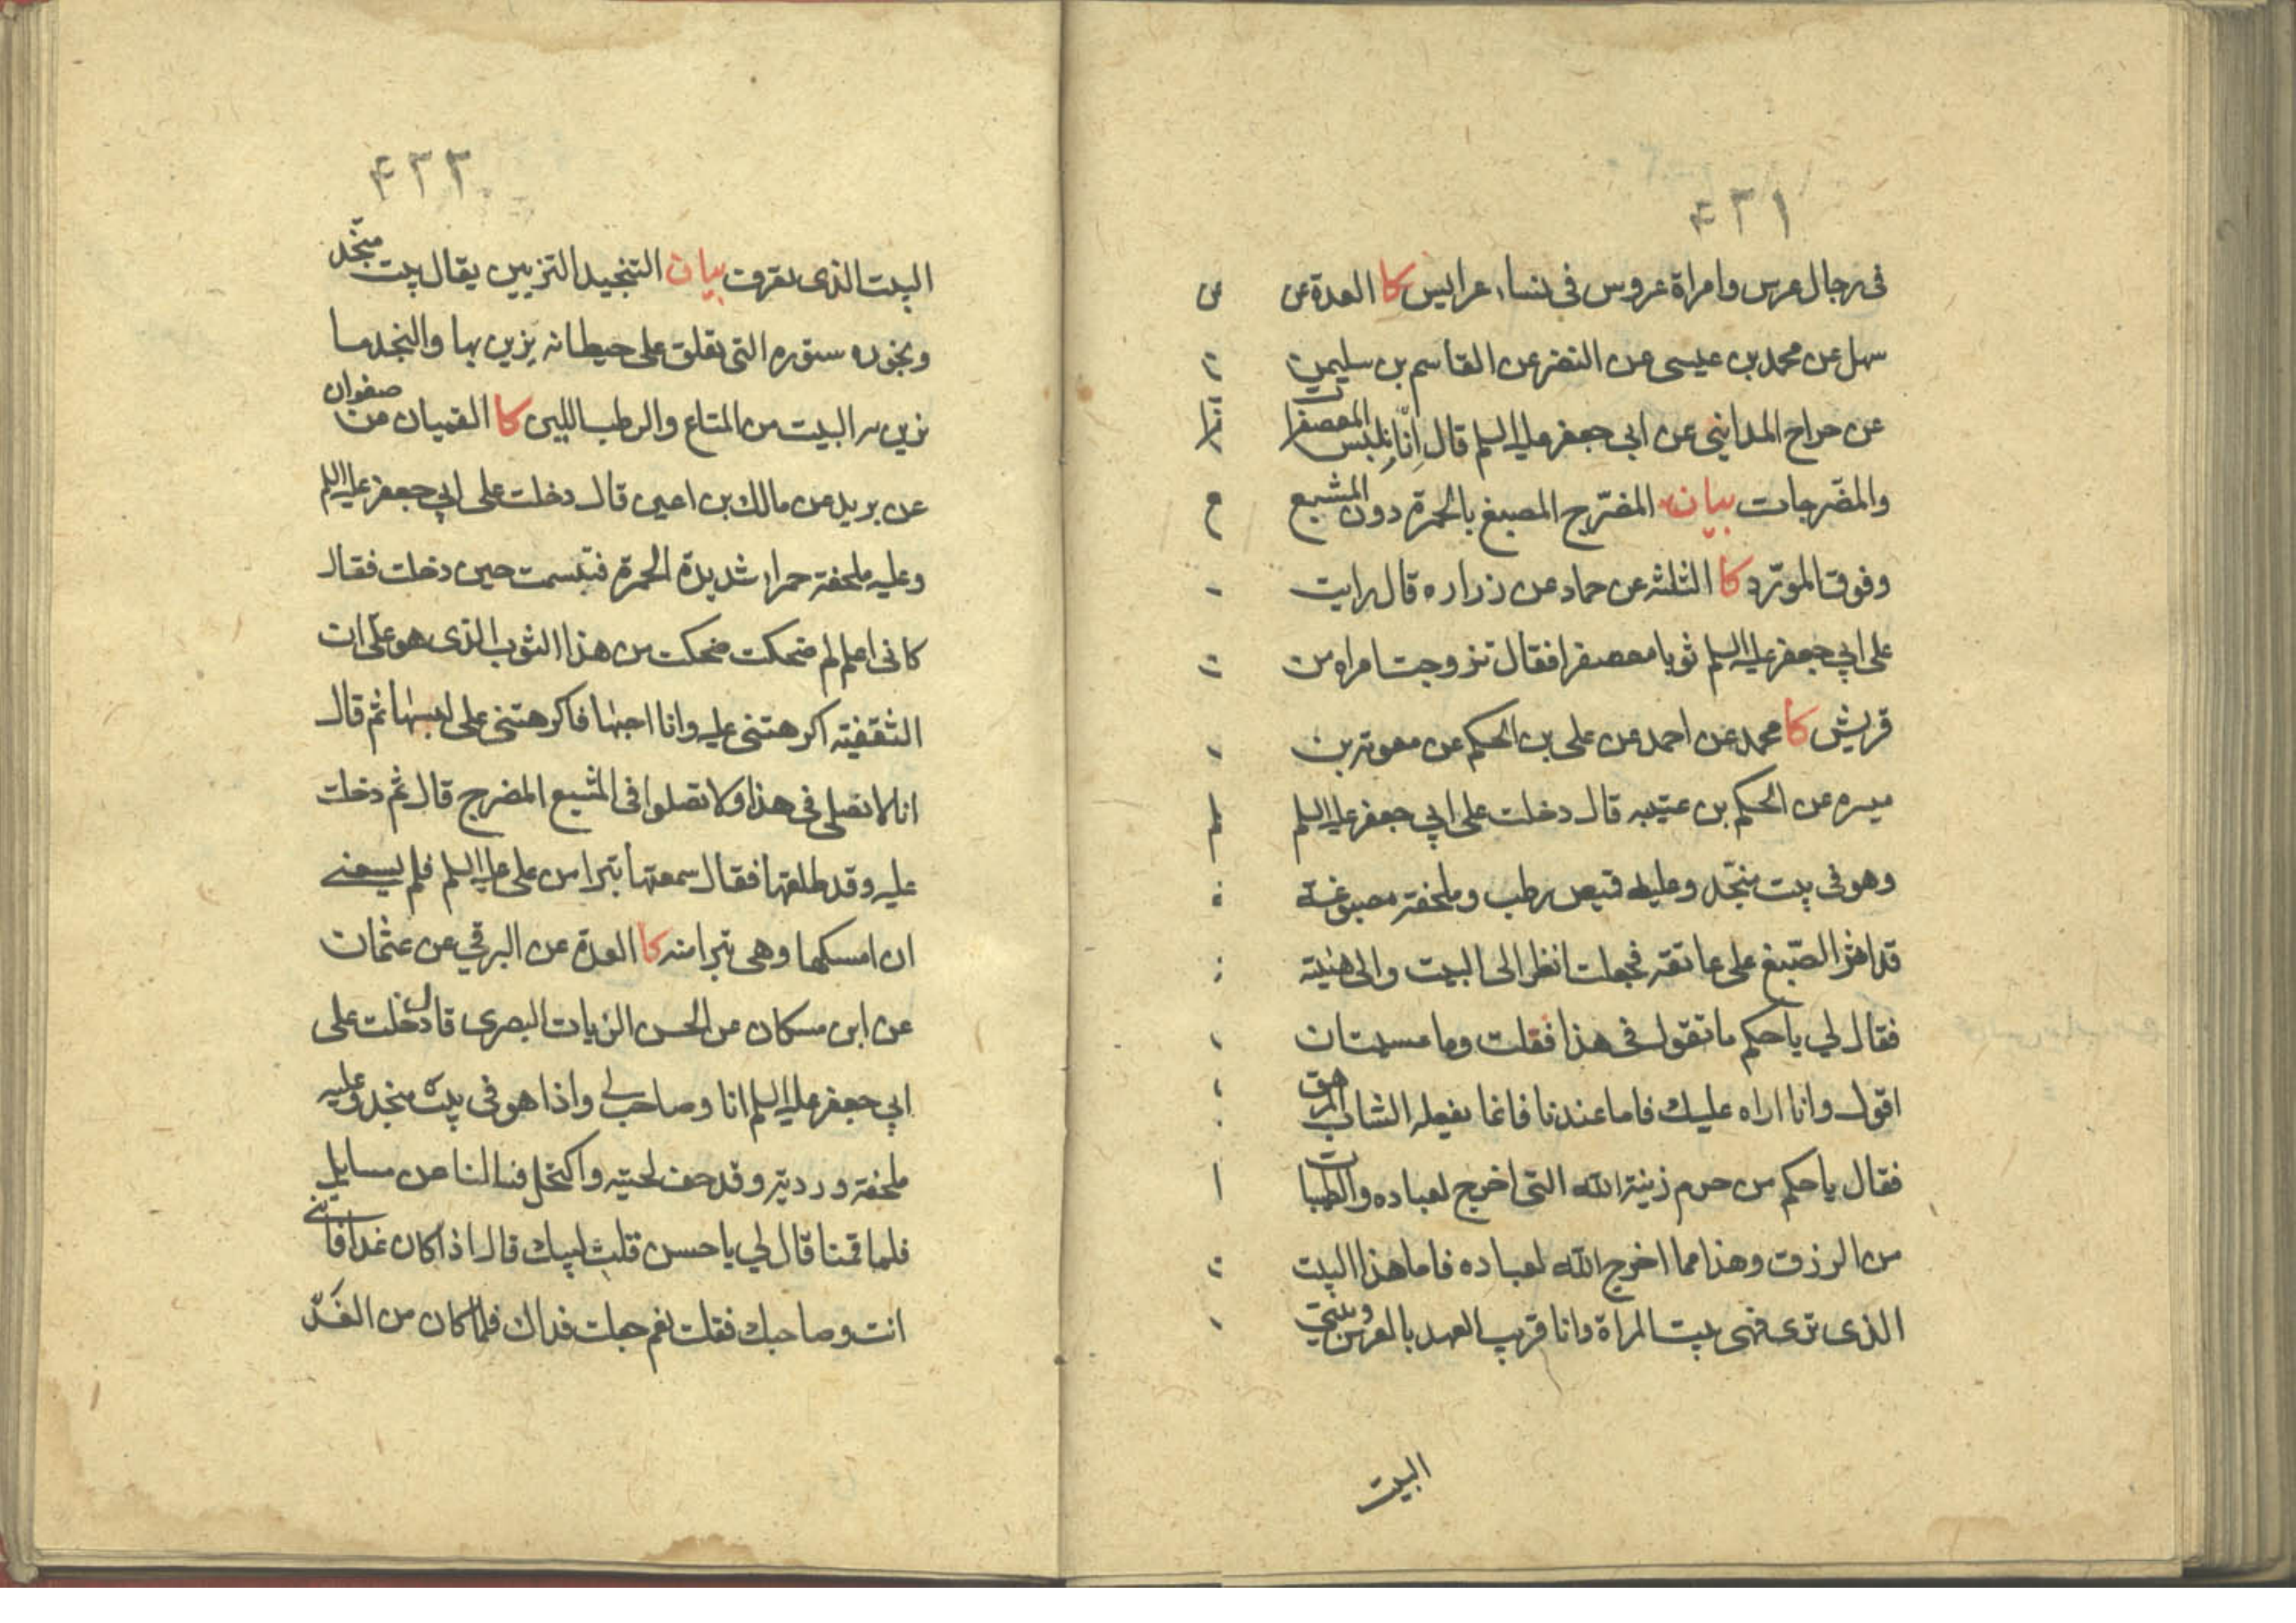 ۴۳۱
فی رجال عرس وامراة عروس فی نساء عرایس کا العدة عن
سهل عن محمد بن عیسی عن النضر عن القاسم بن سلیمن
عن جراح المداینی عن ابی جعفر علیه السلم قال انّا نلبس المعصفرات
والمضرجات بیان المضرّج المصبغ بالحمرة دون المشبع
وفوق المورّد کا الثلثه عن حماد عن زراره قال رایت
علی ابی جعفر علیه السلم ثوبا معصفرا فقال تزوجت امراه من
قریش کا محمد عن احمد عن علی بن الحکم عن معویة بن
میسره عن الحکم بن عتیبه قال دخلت علی ابی جعفر علیه السلم
وهو فی بیت منجّد وعلیه قمیص رطب وملحفة مصبوغة
قد اثر الصّبغ علی عاتقه فجعلت انظر الی البیت والی هیئته
فقال لی یا حکم ما تقول فی هذا فقلت وما عسیت ان
اقول وانا اراه علیك فاما عندنا فانما یفعله الشاب المرهق
فقال یا حکم من حرم زینة الله التی اخرج لعباده والطیبات
من الرزق وهذا مما اخرج الله لعباده فاما هذا البیت
الذی تری فهی بیت المراة وانا قریب العهد بالعرس وبیتی
البیت
۴۳۲
البیت الذی تعرف بیان التنجید التزیین یقال بیت منجّد
ونجوده ستوره التی تعلق علی حیطانه یزین بها والنجد ما
یزین به البیت من المتاع والرطب اللین کا القمیان عن صفوان
عن برید عن مالك بن اعین قال دخلت علی ابی جعفر علیه السلم
وعلیه ملحفة حمراء شدیدة الحمرة فتبسمت حین دخلت فقال
کانی اعلم لم ضحکت ضحکت من هذا الثوب الذی هو علیّ ان
الثقفیته اکرهتنی علیه وانا احبها فاکرهتنی علی لبسها ثم قال
انا لا نصلی فی هذا ولا تصلوا فی المشبع المضرج قال ثم دخلت
علیه وقد طلقها فقال سمعتها تبرا من علی علیه السلم فلم یسعنی
ان امسکها وهی تبرا منه کا العدة عن البرقی عن عثمان
عن ابن مسکان عن الحسن الزیات البصری قال دخلت علی
ابی جعفر علیه السلم انا وصاحب لی واذا هو فی بیت منجد وعلیه
ملحفة وردیة وقد حف لحیته واکتحل فسالنا عن مسایل
فلما قمنا قال لی یا حسن قلت لبیك قال اذا کان غدا فاتنی
انت وصاحبك فقلت نعم جعلت فداك فلما کان من الغد